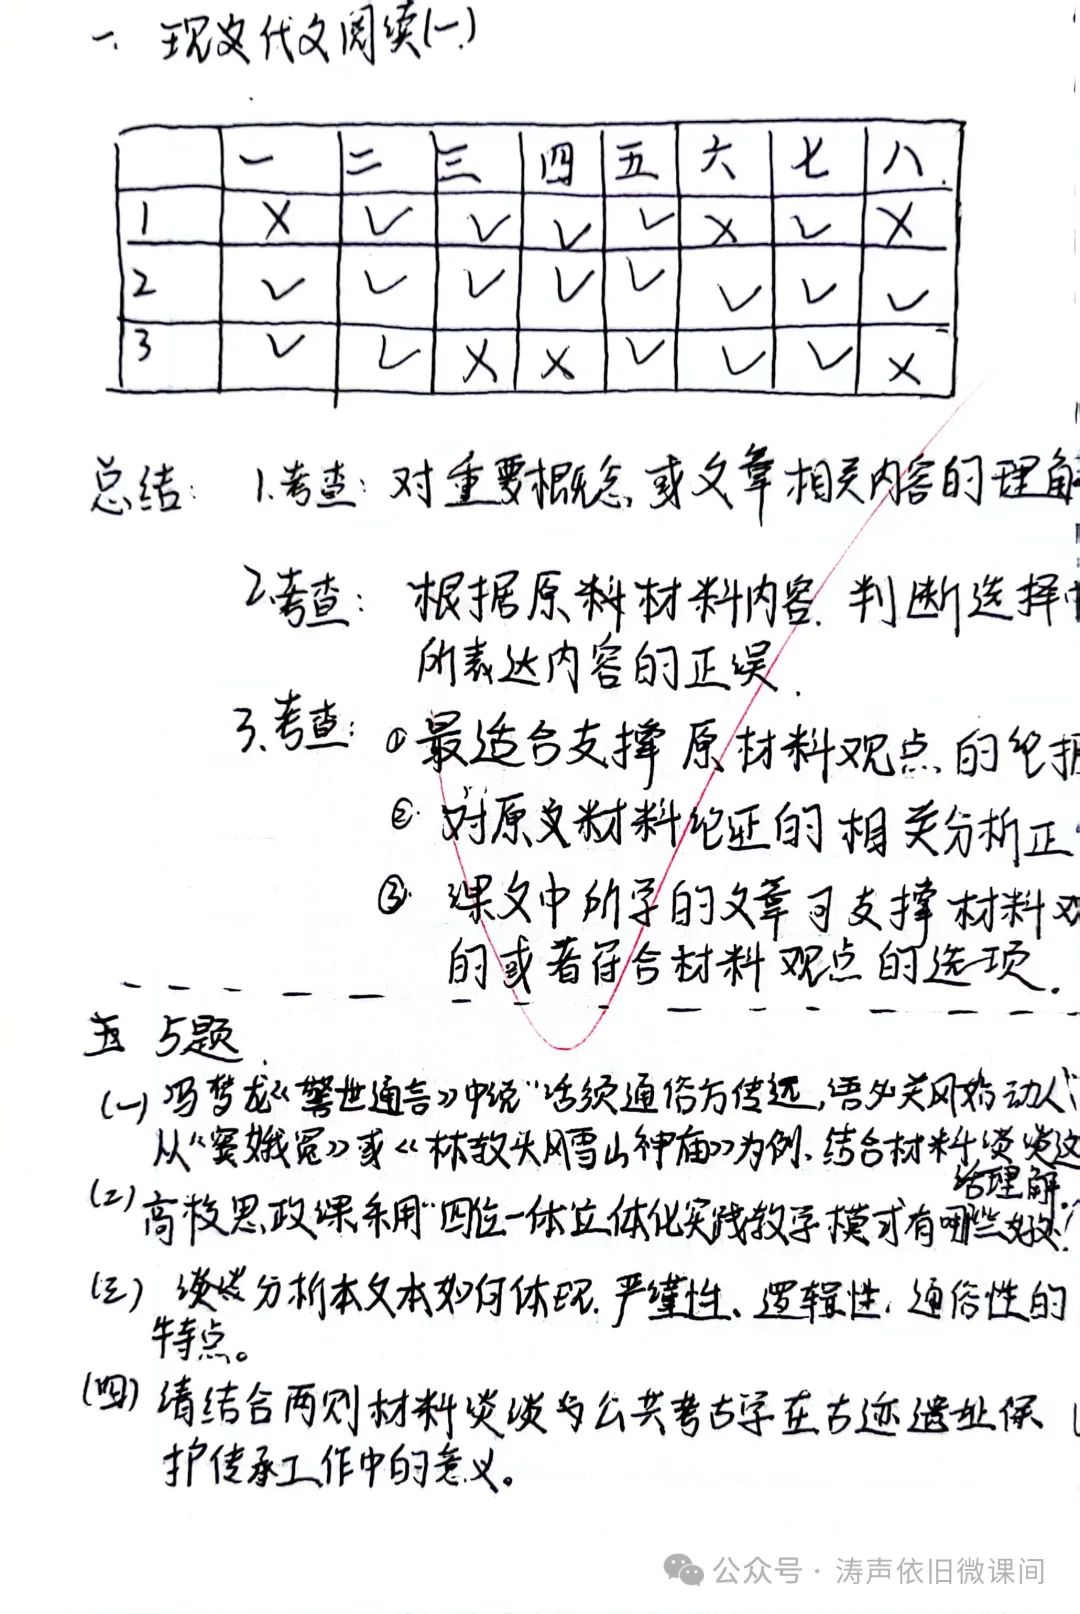 一、现代文阅读(一)
一 二 三 四 五 六 七 八
1 X ✓ ✓ ✓ ✓ X ✓ X
2 ✓ ✓ ✓ ✓ ✓ ✓ ✓ ✓
3 ✓ ✓ X X ✓ ✓ ✓ X
总结: 1.考查: 对重要概念或文章相关内容的理解
2.考查: 根据原材料内容.判断选择
所表达内容的正误.
3.考查: ①最适合支撑原材料观点的论据
②对原文材料论证的相关分析正
③课文中所学的文章可支撑材料观
的或者符合材料观点的选项.
五 5题
(一) 冯梦龙《警世通言》中说"话须通俗方传远,语必关风始动人"
从《窦娥冤》或《林教头风雪山神庙》为例,结合材料谈谈这
话理解.
(2) 高校思政课采用"四位一体"立体化实践教学模式有哪些好处?
(三) 谈谈分析本文本如何体现.严谨性、逻辑性,通俗性的
特点。
(四) 请结合两则材料谈谈公共考古学在古迹遗址保
护传承工作中的意义。
公众号·涛声依旧微课间